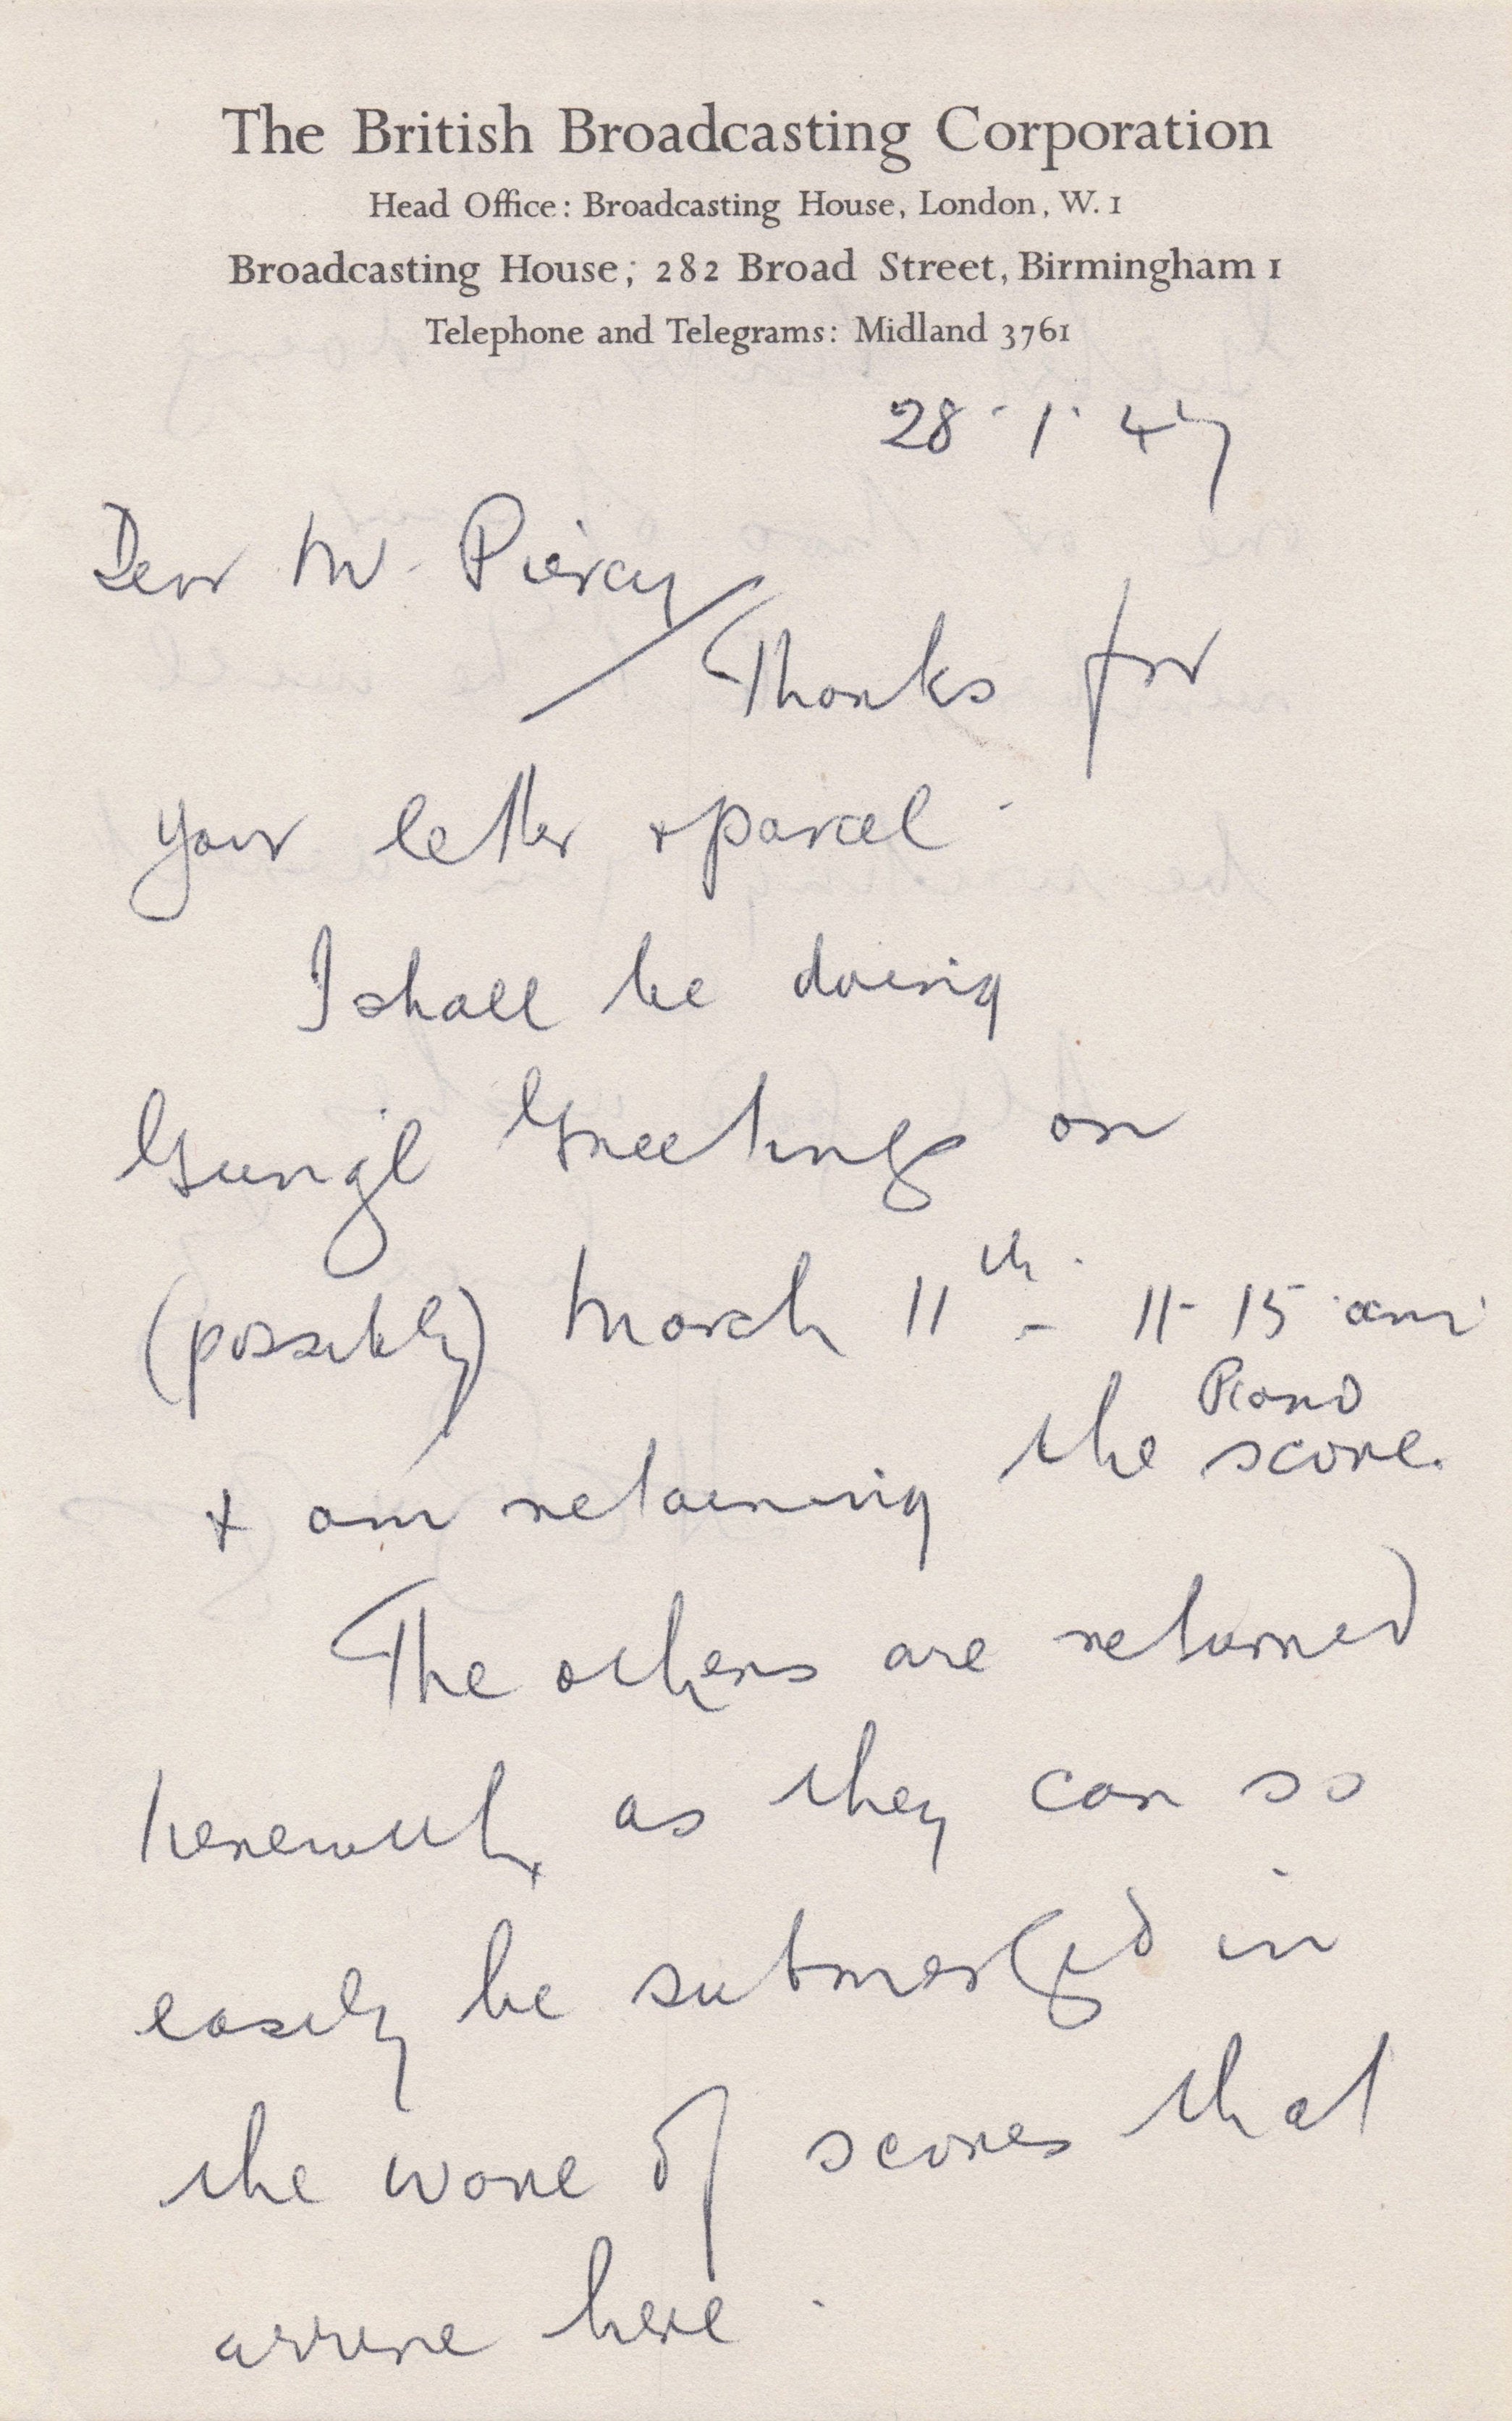 The British Broadcasting Corporation
Head Office: Broadcasting House, London, W. 1
Broadcasting House, 282 Broad Street, Birmingham 1
Telephone and Telegrams: Midland 3761
28. 1. 47
Dear Mr. Piercy
Thanks for
your letter & parcel.
I shall be doing
Gungl Greetings on
(possibly) March 11th - 11-15 am
& am retaining the Piano score.
The others are returned
herewith, as they can so
easily be submerged in
the wave of scores that
arrive here.